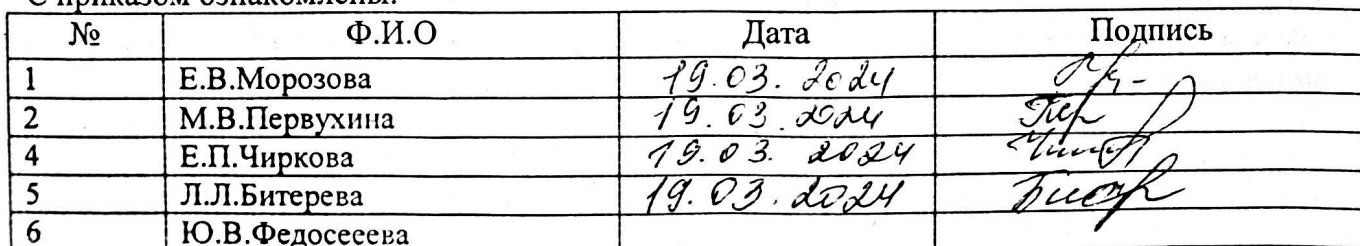 С приказом ознакомлены:
№ Ф.И.О Дата Подпись
1 Е.В.Морозова 19.03.2024
2 М.В.Первухина 19.03.2024 Пер
4 Е.П.Чиркова 19.03.2024
5 Л.Л.Битерева 19.03.2024
6 Ю.В.Федосеева